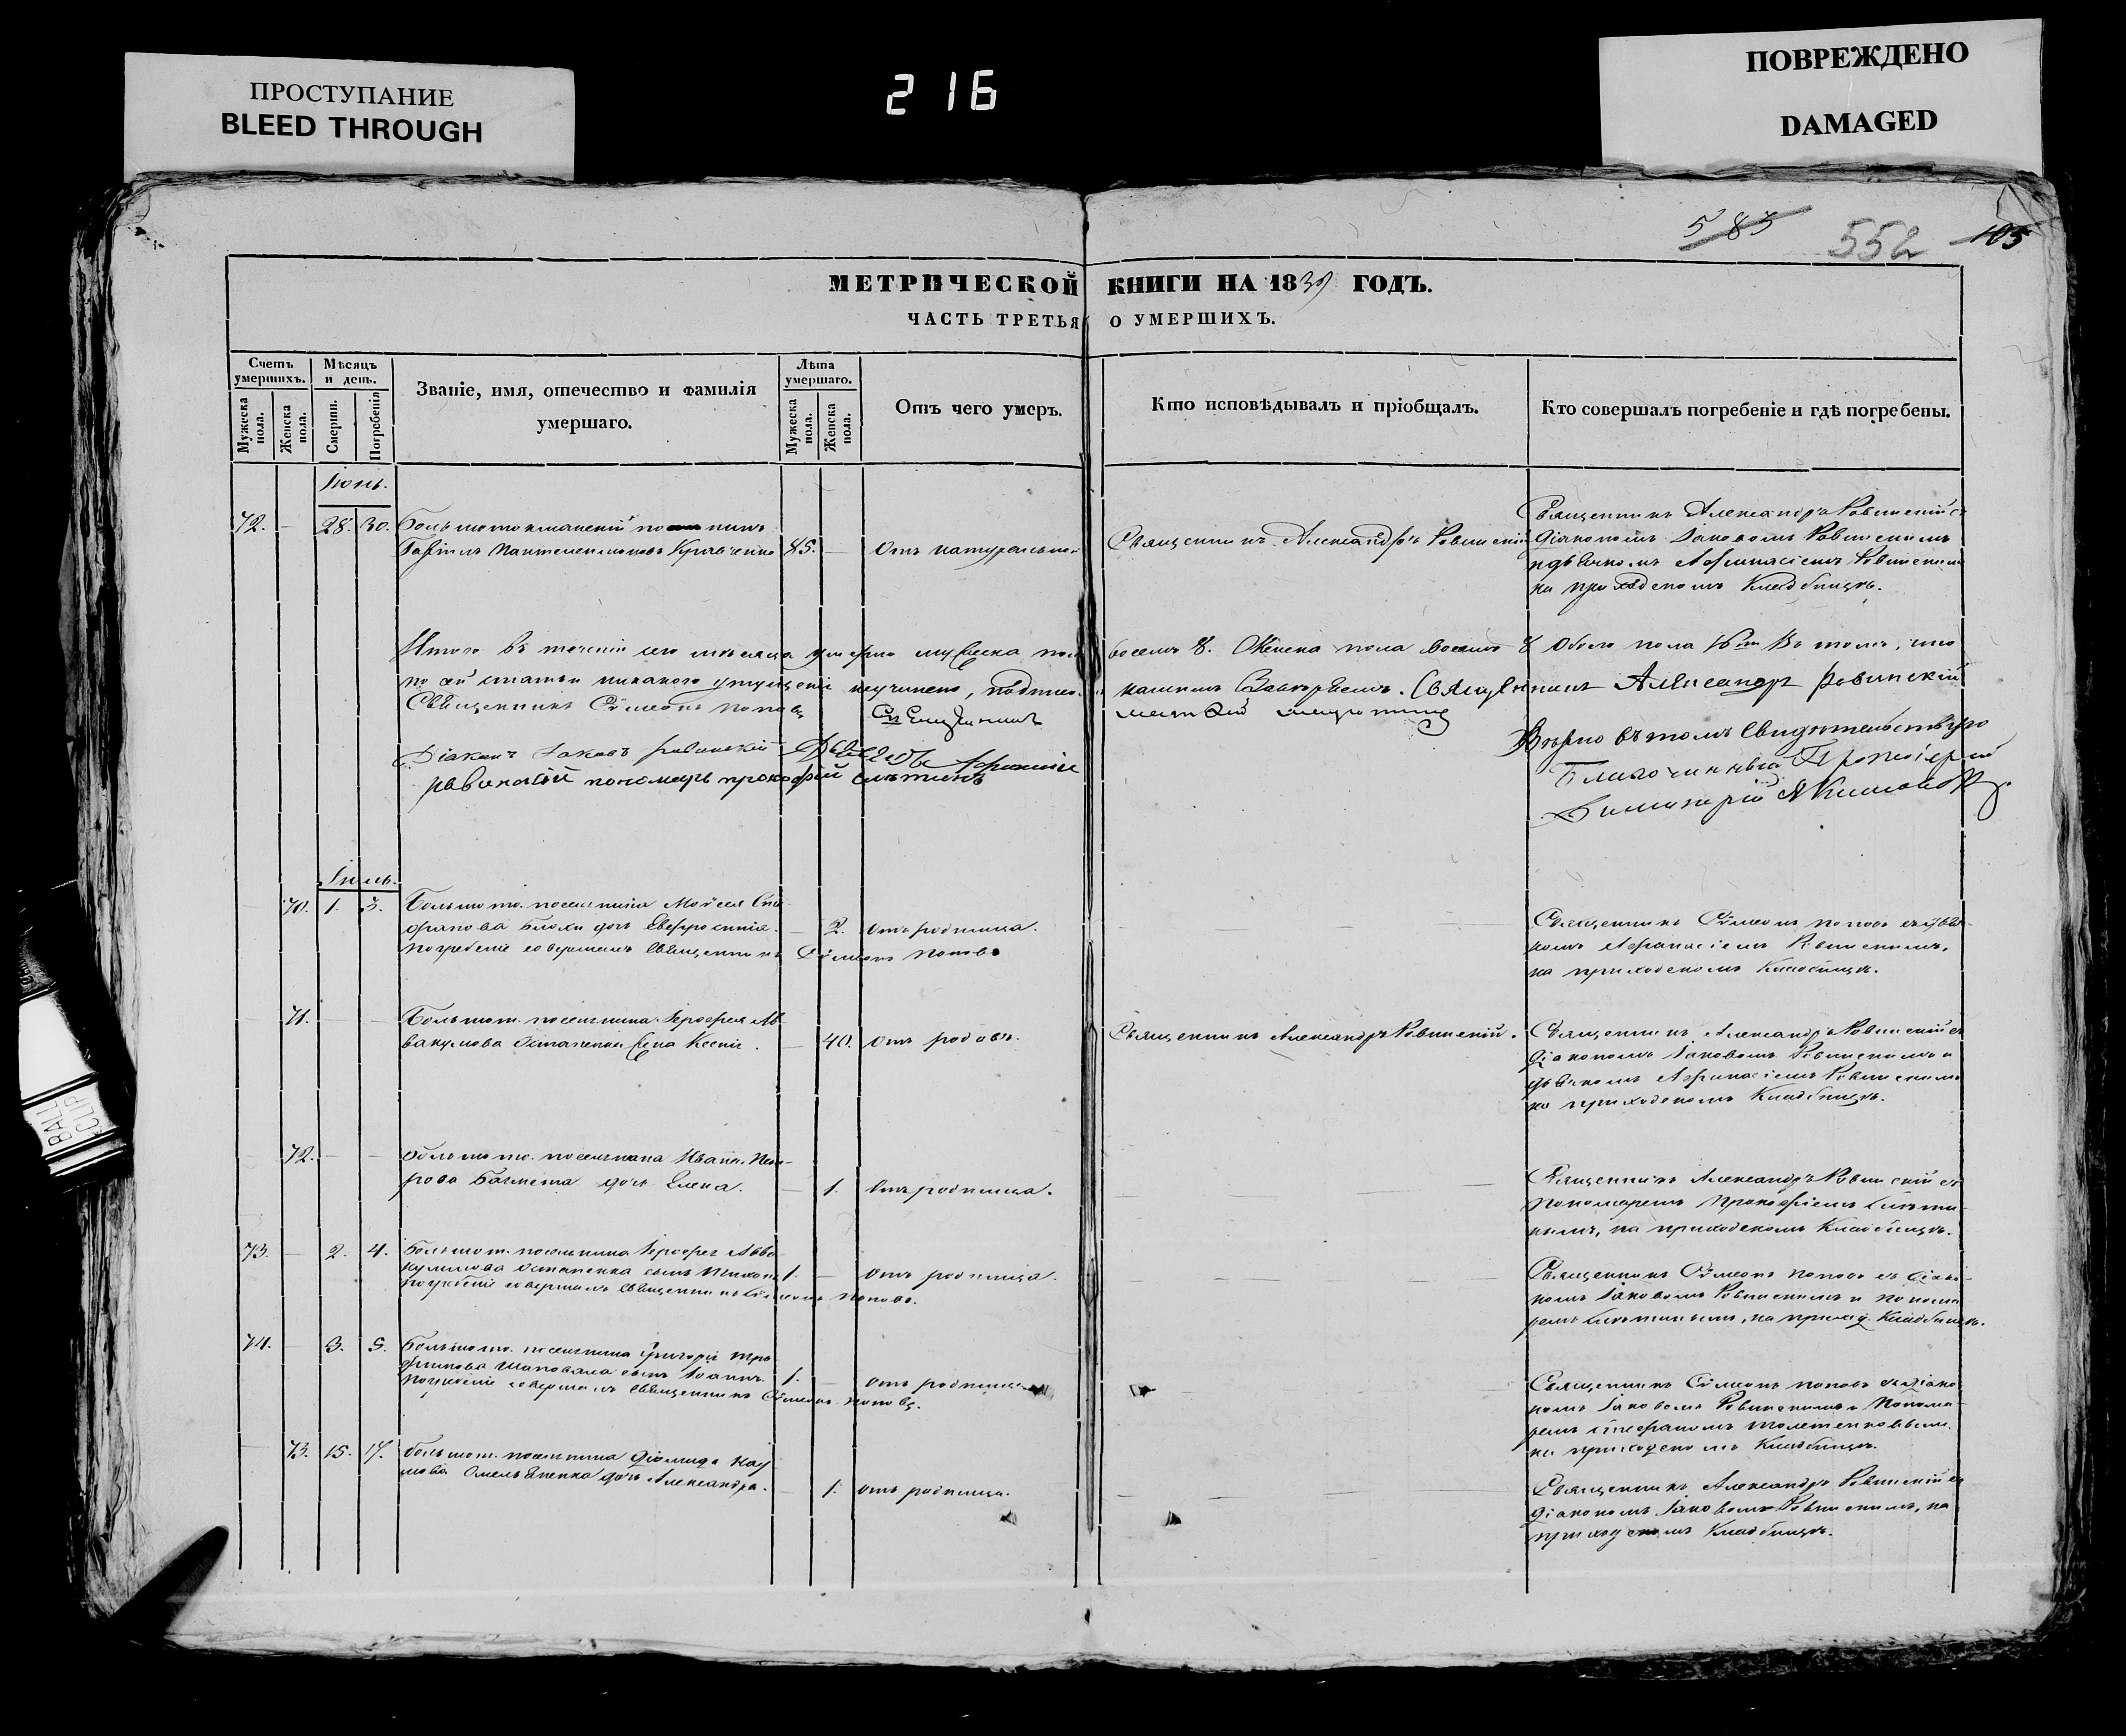 ПРОСТУПАНИЕ
BLEED THROUGH
216
ПОВРЕЖДЕНО
DAMAGED
583 552 105
МЕТРИЧЕСКОЙ КНИГИ НА 1839 ГОДЪ.
ЧАСТЬ ТРЕТЬЯ О УМЕРШИХЪ.
Счетъ умершихъ.
Мужеска пола.
Женска пола.
Мѣсяцъ и день.
Смерти.
Погребенія
Званіе, имя, отечество и фамилія
умершаго.
Лѣта умершаго.
Мужеска пола.
Женска пола.
Отъ чего умеръ.
Кто исповѣдывалъ и пріобщалъ.
Кто совершалъ погребеніе и гдѣ погребены.
Іюнь.
72. - 28. 30. Большетокмацкій
Кравченко 85. - Отъ натуральной
Священникъ Александръ Ровинскій
Священникъ Александръ Ровинскій съ
Діакономъ Іаковомъ Ровинскимъ
и дьячкомъ Афанасіемъ Ровинскимъ
на приходскомъ Кладбищѣ.
Итого въ теченіи сего мѣсяца умерло мужеска пола восемь 8. Женска пола восемь 8 Обоего пола 16 Въ томъ, что
по сей статьи никакого упущенія неучинено, подписомъ нашимъ Завѣряемъ. Священникъ Александръ Ровинскій
Священникъ Сѵмеонъ Поповъ Священникъ
Діаконъ Іаковъ Ровинскій Дьячокъ Афанасій
Ровинскій пономарь Прокофій
Вѣрно въ томъ Свидѣтельствую
Благочинный Протоіерей
Димитрій
Іюль.
70. 1. 3. Большето. поселянина Мойсея
Блохи дочь Евфросинія. - 2. Отъ родимца.
Погребеніе совершалъ Священникъ Сѵмеонъ Поповъ
Священникъ Сѵмеонъ Поповъ съ дьяч-
комъ Афанасіемъ Ровинскимъ,
на приходскомъ Кладбищѣ.
71. - - Большет. поселянина Ав-
вакумова Остапенка жена Ксенія. - 40. Отъ родовъ.
Священникъ Александръ Ровинскій.
Священникъ Александръ Ровинскій съ
Діакономъ Іаковомъ Ровинскимъ и
дьячкомъ Афанасіемъ Ровинскимъ
на приходскомъ Кладбищѣ.
72. - - Большето. поселянина Ивана Пет-
рова дочь Елена. - 1. Отъ родимца.
Священникъ Александръ Ровинскій съ
Пономаремъ Прокофіемъ
на приходскомъ Кладбищѣ.
73. - 2. 4. Большет. поселянина Авва-
кумова Остапенка сынъ 1. - Отъ родимца.
погребеніе совершалъ Священникъ Сѵмеонъ Поповъ.
Священникъ Сѵмеонъ Поповъ съ Діако-
номъ Іаковомъ Ровинскимъ и Понома-
ремъ на приход. Кладбищѣ.
74. - 3. 5. Большето. поселянина Григорія Тро-
фимова Шаповала сынъ Іоаннъ. 1. - Отъ родимца
погребеніе совершалъ Священникъ Сѵмеонъ Поповъ.
Священникъ Сѵмеонъ Поповъ съ Діако-
номъ Іаковомъ Ровинскимъ и Понома-
ремъ Стефаномъ
на приходскомъ Кладбищѣ.
73. 15. 17. Большет. поселянина Діомида Нау-
мова Омельяненка дочь Александра. - 1. Отъ родимца.
Священникъ Александръ Ровинскій съ
Діакономъ Іаковомъ Ровинскимъ, на
приходскомъ Кладбищѣ.
BALL
CLIP